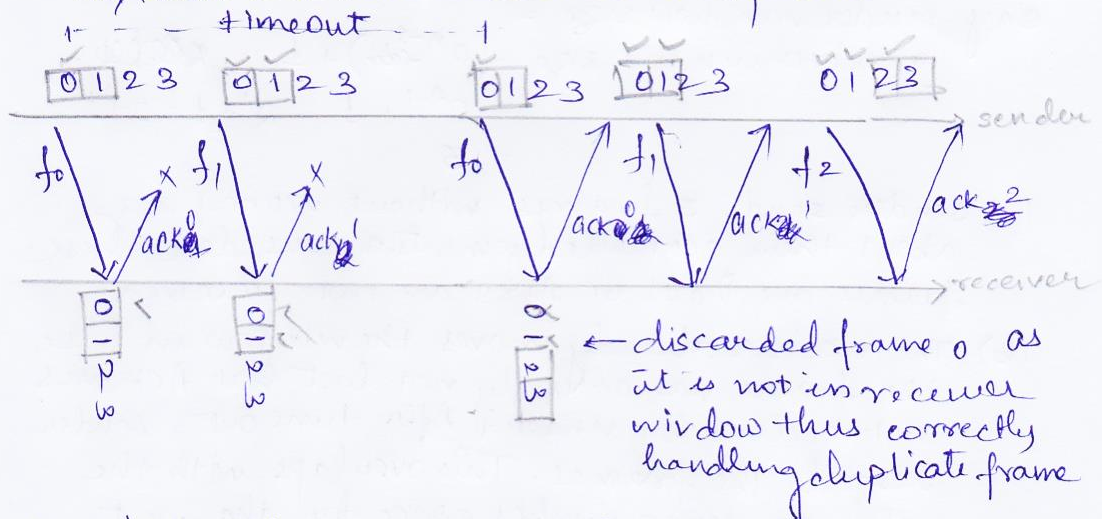 timeout
0 1 2 3 0 1 2 3 0 1 2 3 0 1 2 3 0 1 2 3
sender
f0 f1 f0 f1 f2
x x
ack 0 ack 1 ack 0 ack 1 ack 2
receiver
0 1 2 3 0 1 2 3 0 1 2 3
← discarded frame 0 as
it is not in receiver
window thus correctly
handling duplicate frame